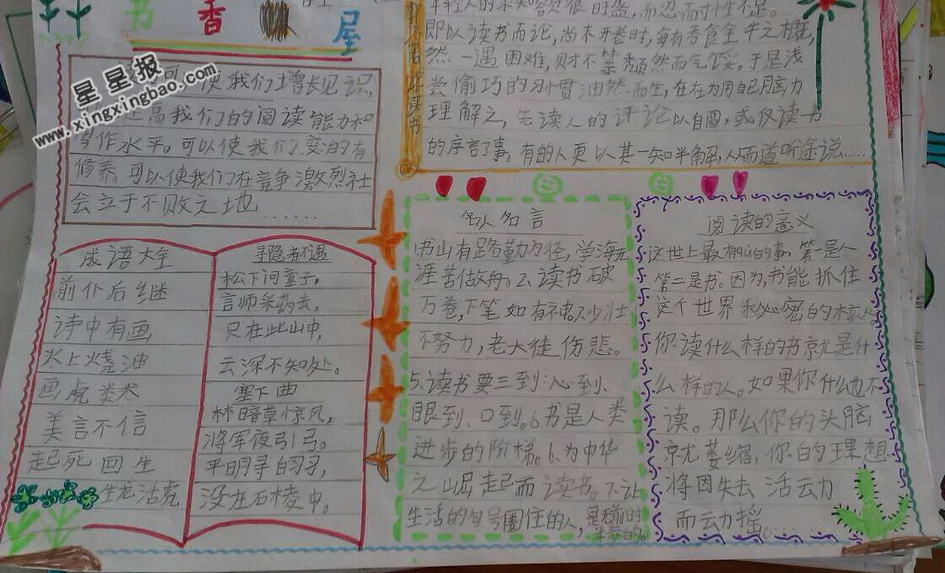 书香屋
星星报
www.xingxingbao.com
使我们增长见识,
高我们的阅读能力和
写作水平。可以使我们变的有
修养。可以使我们在竞争激烈社
会立于不败之地……
年轻人的求知欲很时盛,而忍而
即以读书而论,尚未开卷时,每有吞食全牛之概,
然一遇困难,则不禁颓然而气馁。于是浅
尝偷巧的习惯油然而生,在在为用自己脑力
理解之,先读人的评论以自圆,或仅读一书
的序言了事。有的人更以某一知半解,人而道听途说……
成语大全
前仆后继
诗中有画
火上烧油
画虎类犬
美言不信
起死回生
生龙活虎
寻隐者不遇
松下问童子,
言师采药去。
只在此山中,
云深不知处。
塞下曲
林暗草惊风,
将军夜引弓。
平明寻白羽,
没在石棱中。
名人名言
书山有路勤为径,学海无
涯苦做舟。2、读书破
万卷,下笔如有神。少壮
不努力,老大徒伤悲。
5.读书要三到:心到、
眼到、口到。6书是人类
进步的阶梯。6.为中华
之崛起而读书。7.让
生活的句号圈住的人,是无前时
半步的。
阅读的意义
这世上最有的事,第一是人
第二是书。因为,书能抓住
这个世界秘密的核
你读什么样的书就是什
么样的人。如果你什么也不
读。那么你的头脑
就萎缩,你的理想
将因失去活动力
而动摇